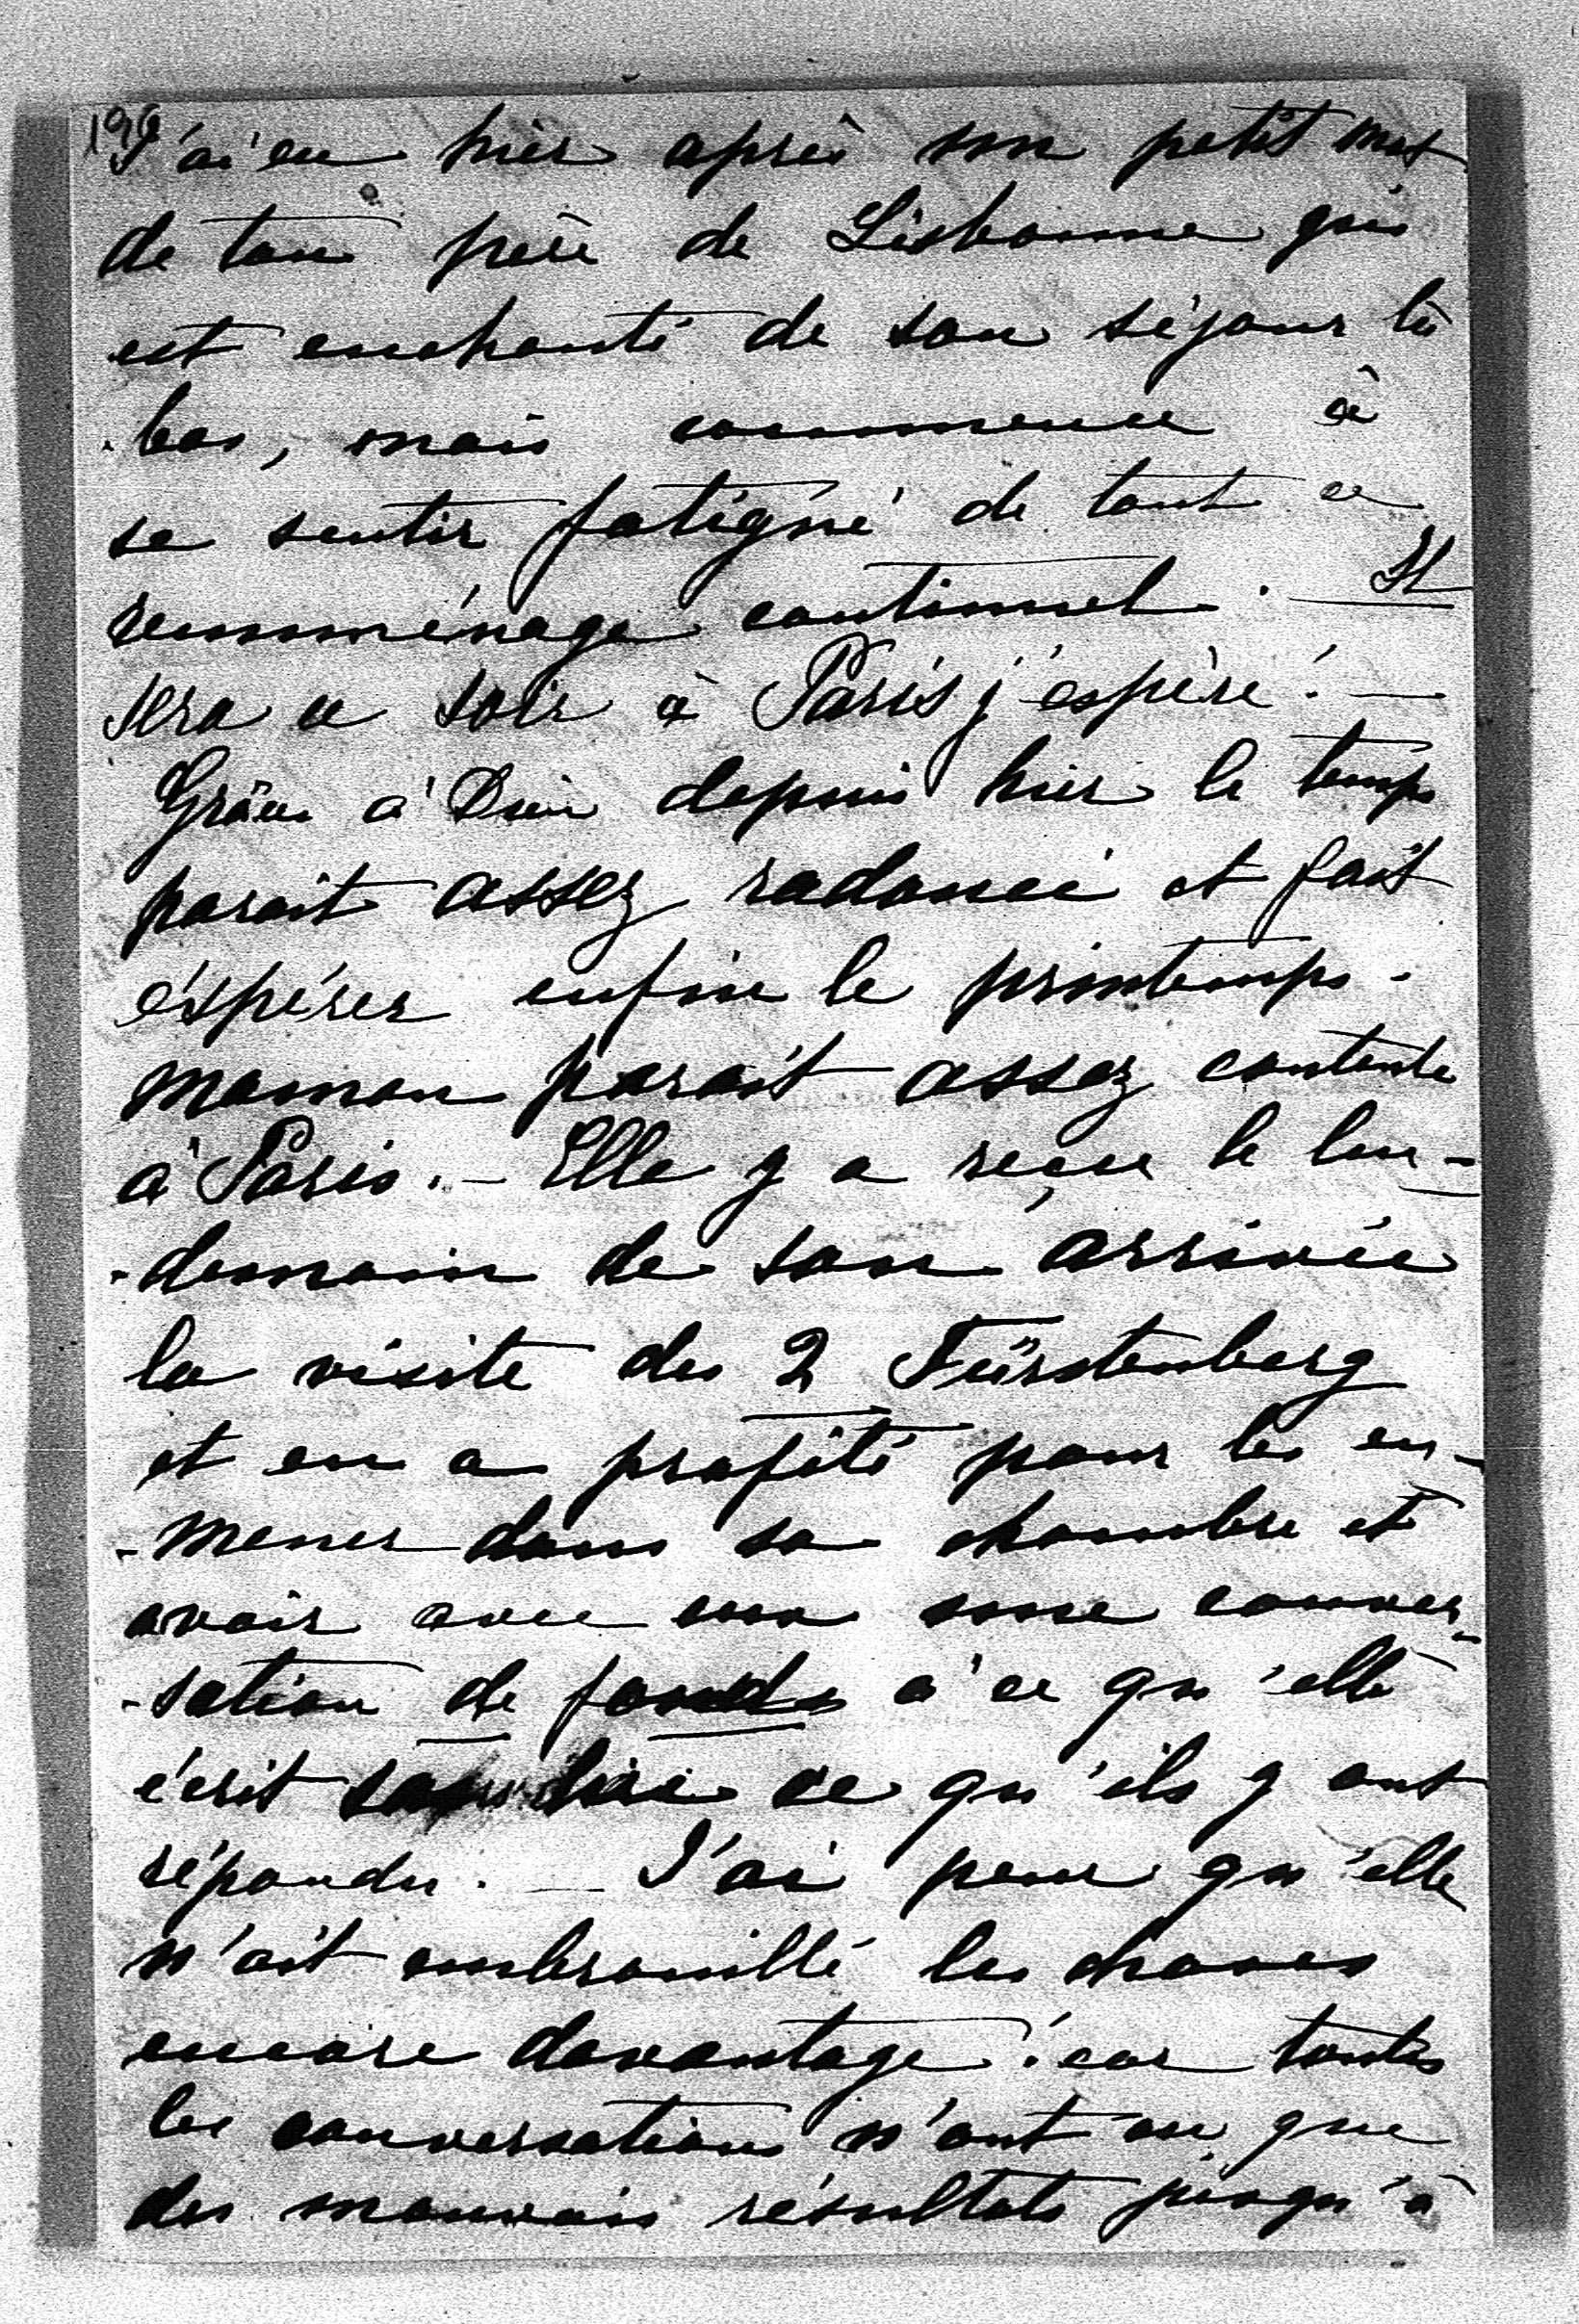 196
J'ai eu hier après un petit mot
de ton père de Lisbonne qui
est enchanté de son séjour là
-bas, mais commence à
se sentir fatigué de tout ce
remménage continuel. — Il
sera ce soir à Paris j'espère! —
Grâce à Dieu depuis hier le temps
parait assez radouci et fait
éspérer enfin le printemps.
Maman parait assez contente
à Paris. — Elle y a reçue le len-
-demain de son arrivée
la visite des 2 Fürstenberg
et en a profité pour les en-
-mener dans sa chambre et
avoir avec eux une conver-
-sation de fonds à ce qu'elle
écrit sans dire ce qu'ils y ont
répondu. — J'ai peur qu'elle
n'ait embrouillé les choses
encore davantage! car toutes
les conversations n'ont eu que
des mauvais résultats jusqu'à